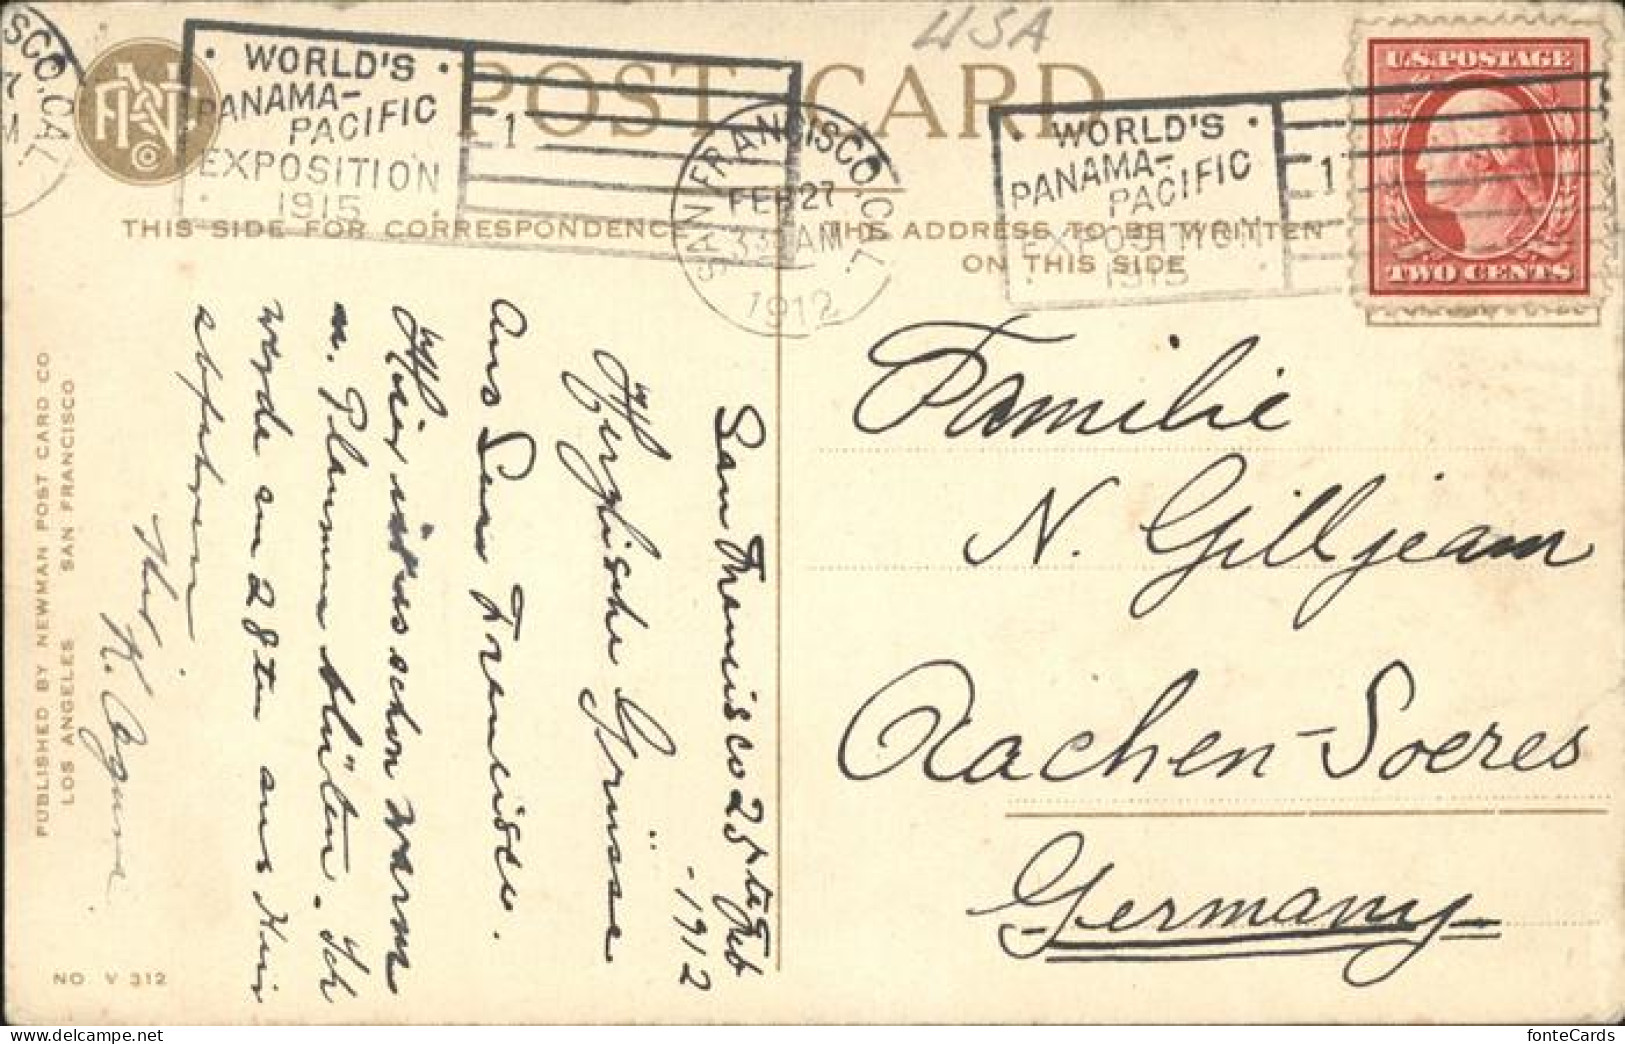 USA
POST CARD
SCO. CAL.
7
M
WORLD'S
PANAMA-
PACIFIC
EXPOSITION
1915
1
SAN FRANCISCO, CAL.
FEB 27
3 30 AM
1912
WORLD'S
PANAMA-
PACIFIC
EXPOSITION
1915
1
U.S. POSTAGE
TWO CENTS
THIS SIDE FOR CORRESPONDENCE
THE ADDRESS TO BE WRITTEN
ON THIS SIDE
San Francisco 25te Feb
-1912
Herzlische Grüsse
aus San Francisco.
Hier ist es schon warm
u. Blumen blühen. Ich
werde am 28ten aus Hier
abfahren
K.
Familie
N. Gilljeam
Aachen-Soeres
Germany
PUBLISHED BY NEWMAN POST CARD CO
LOS ANGELES SAN FRANCISCO
NO V 312
fonteCards